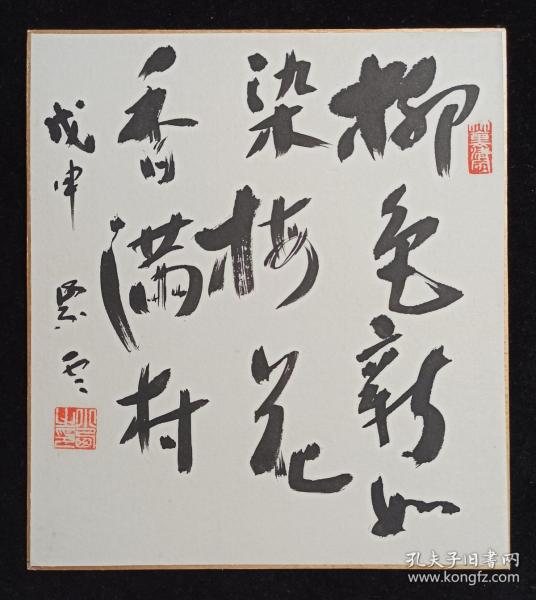 柳色新如
染梅花
香满村
戊申
孔夫子旧书网
www.kongfz.com